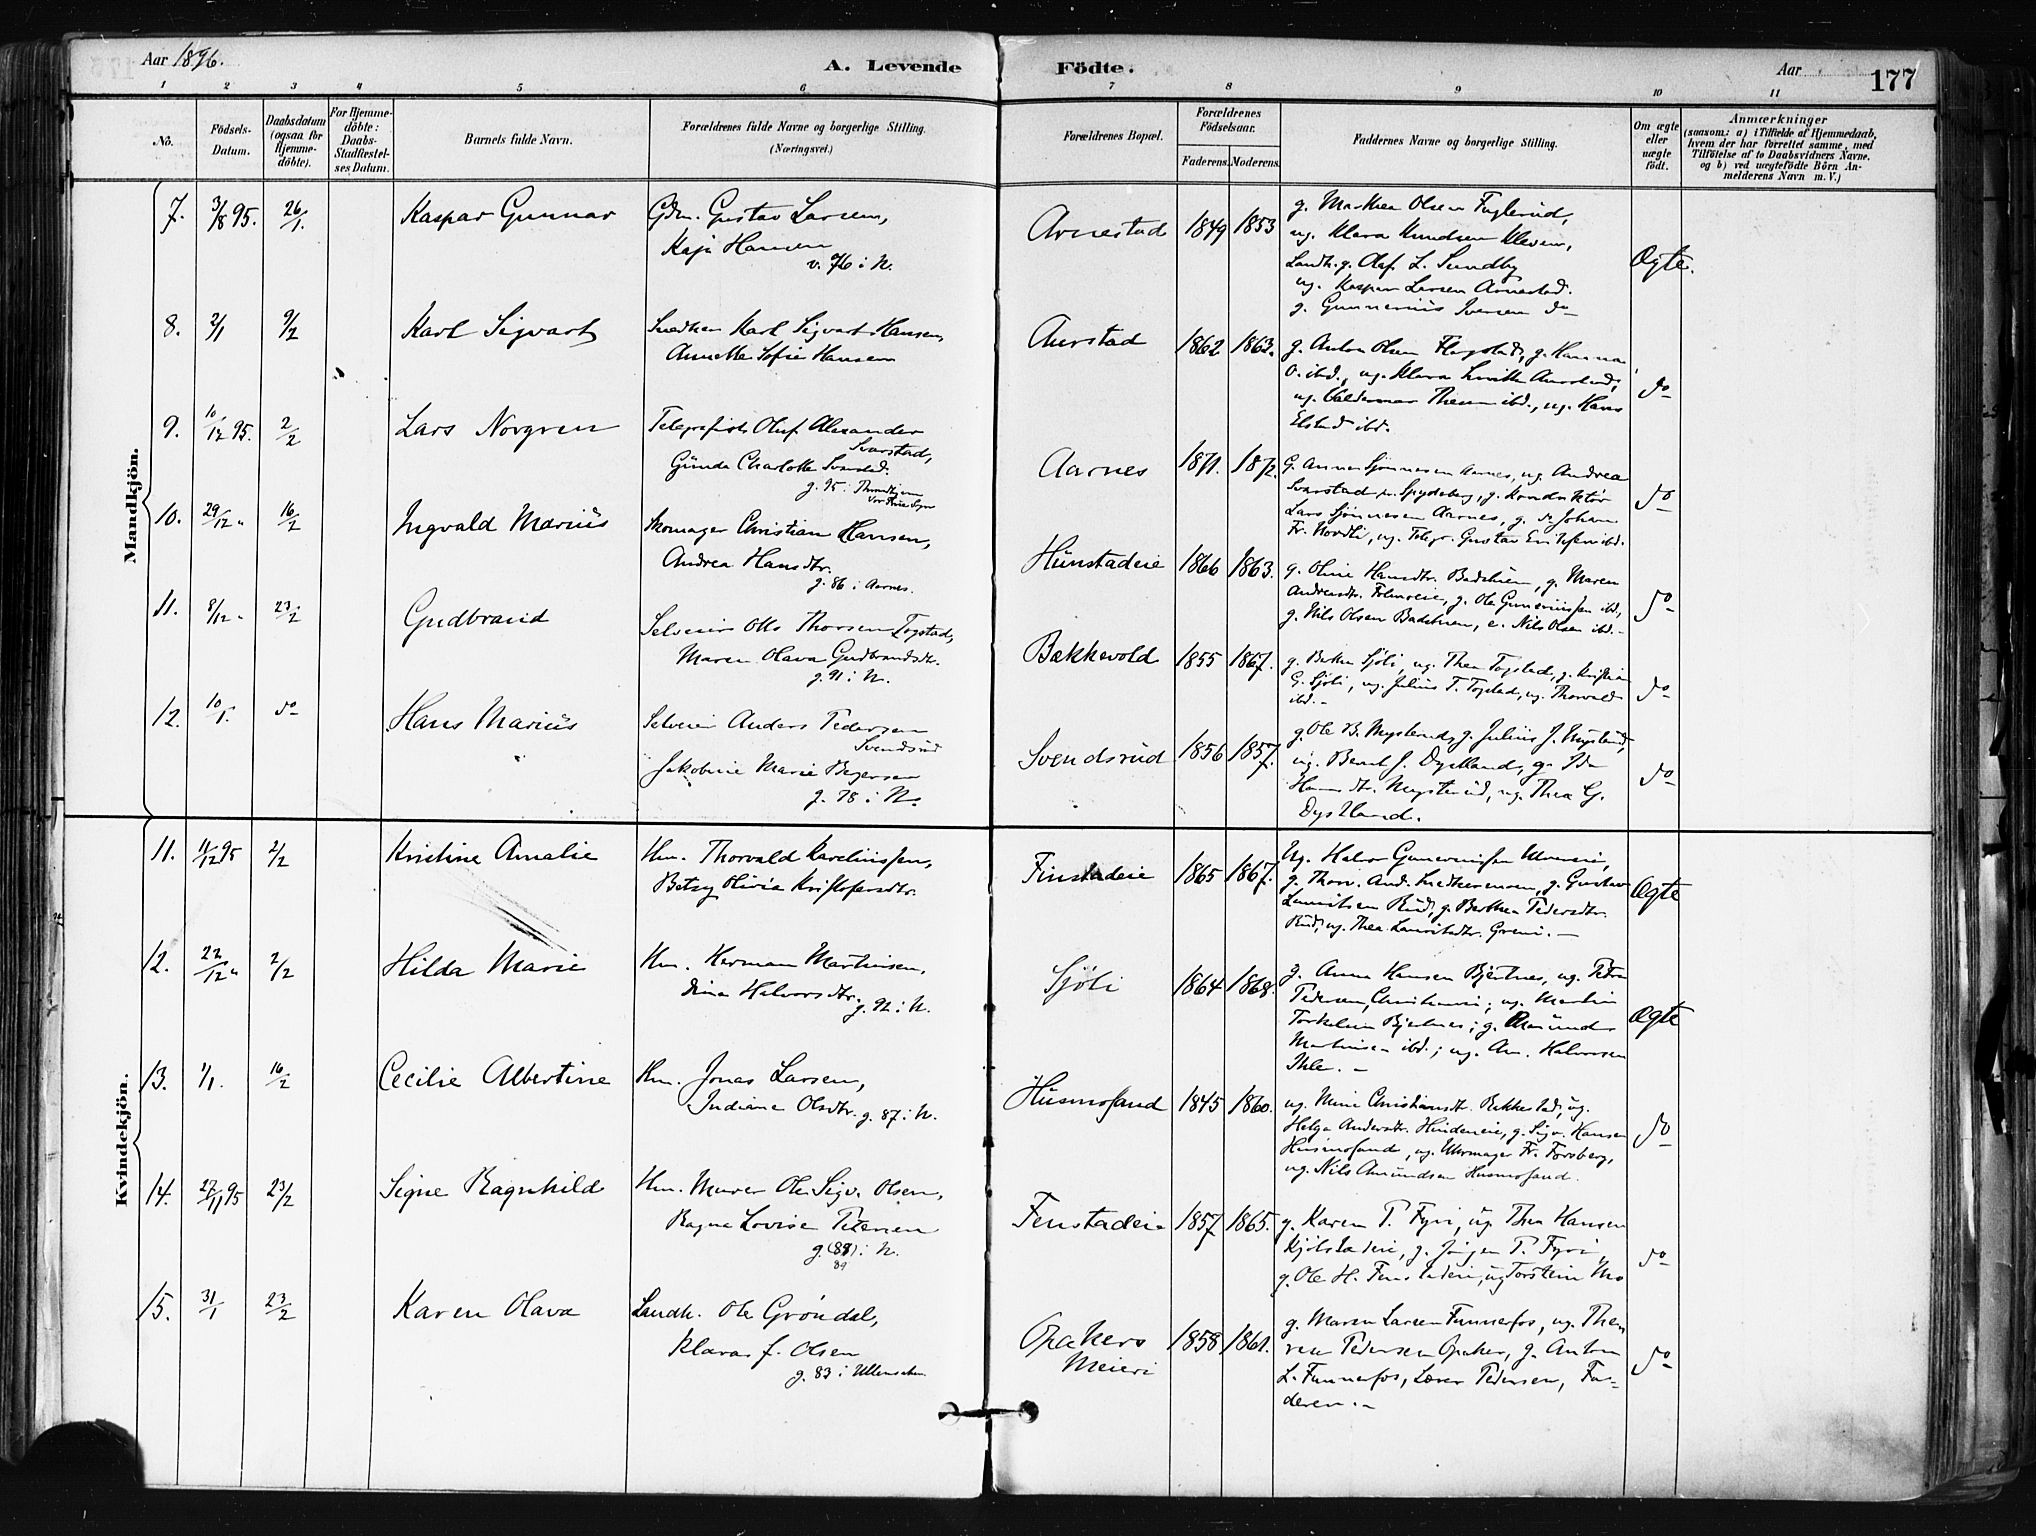 Aar 1896.
A. Levende
Födte.
Aar
177
1 2 3 4 5 6 7 8 9 10 11
No.
Födsels-
Datum.
Daabsdatum
(ogsaa for
Hjemme-
döbte).
For Hjemme-
döbte:
Daabs-
Stadfæstel-
ses Datum.
Barnets fulde Navn.
Forældrenes fulde Navne og borgerlige Stilling.
(Næringsvei.)
Forældrenes Bopæl.
Forældrenes
Födselsaar.
Faderens. Moderens.
Faddernes Navne og borgerlige Stilling.
Om ægte
eller
uægte
födt.
Anmærkninger
(saasom: a) i Tilfælde af Hjemmedaab,
hvem der har forrettet samme, med
Tilföielse af to Daabsvidners Navne.
og b) ved uægtefödte Börn An-
melderens Navn m. V.)
Mandkjön.
7. 3/8 95. 26/1. Kaspar Gunnar
Gdm. Gustav Larsen,
Kaja Hansen
v. 76 i N.
Arnestad 1849 1853
g. Mathea Olsen Fuglerud,
ug. Klara Knudsen Kleven,
Landh. g. Olaf L. Sundby
ug. Kaspar Larsen Arnestad.
g. Gunnerius Iversen do
Ægte.
8. 2/1 9/2 Karl Sigvart
Snedker Karl Sigvart Hansen,
Annette Sofie Hansen
Aurstad 1862 1863.
g. Anton Olsen Flagstad, g. Hanna
O. ibd., ug. Klara
ug. Valdemar Them ibd., ug. Hans
Elstad ibd.
do
9. 10/12 95. 2/2 Lars Norgren
Telegrafist Oluf Alexander
Svarstad,
Gunda Charlotte Svarstad.
g. 95 i Throndhjem
Vor Frue Sogn
Aarnes 1871. 1872.
G. Anna Sjønnesen Aarnes, ug. Andrea
Svarstad Spydeberg, g. Konduktör
Lars Sjønnesen Aarnes, g. Johan
Fr. Nordli, ug. Telegr. Gustav Eriksen ibd.
do
10. 29/12 " 16/2 Ingvald Marius
Skomager Christian Hansen,
Andrea Hansdtr.
g. 86 i Aarnes.
Hunstadeie 1866 1863.
g. Oline Hansdtr. Badstuen, g. Maren
Andreasdtr. g. Ole Guneriussen ibd,
g. Nils Olsen Badstuen, e. Nils Olsen ibd.-
do
11. 8/12 " 23/2 Gudbrand
Selveier Otto Thorsen Togstad,
Maren Olava Gudbrandsdtr.
g. 91 i N.
Bækkevold 1855 1867.
g. Sjöli, ug. Thea Togstad, g. Kristian
G. Sjöli, ug. Julius T. Togstad, ug. Thorvald
ibd.-
do
12. 10/1. do Hans Marius
Selveier Anders Pedersen
Svendsrud
Jakobine Marie Bergersen
g. 78 i N.
Svendsrud 1856 1857.
g. Ole B. Mysterud, g. Julius J. Mysterud,
ug. Bernt J. Dystland, g. Ida
Hansdtr. Mysterud, ug. Thea G.
Dystland.
do
Kvindekjön.
11. 11/12 95 2/2 Kristine Amalie
Hm. Thorvald Kareliussen,
Betsy Olivia Kristofersdtr.
Finstadeie 1865 1867.
Ug. Halvor Gunerius­sen
g. Thorv. And. Snedkermoen, g. Gustav
Lauritsen Rud, g. Berthea Pedersdtr.
Rud, ug. Thea Lauritsdtr. Greni. -
Ægte
12. 22/12 " 2/2 Hilda Marie
Hm. Herman Martinsen,
Dina Halvorsdtr.
g. 92 i N.
Sjöli 1864 1868.
g. Anna Hansen Bjertnes, ug. Petra
Pedersen, Christiania; ug. Martin
Torkelsen Bjertnes; g. Amund
Martinsen ibd.; ug. An. Halvorsen
Ihle. -
Ægte
13. 1/1. 16/2 Cecilie Albertine
Hm. Jonas Larsen,
Indiana Olsdtr. g. 87 i N.
Husmosand 1845 1860.
ug. Mina Christiansdtr. Bekkestad, ug.
Helga Andersdtr. Hindeneie, g. Sigv. Hansen
Husmosand, ug. Uhrmager Fr. Forsberg,
ug. Nils Amundsen Husmosand.
do
14. 27/11 95 23/2 Signe Ragnhild
Hm. Murer Ole Sigv. Olsen,
Ragna Lovise Petersen
g. (88) i N.
89
Fenstadeie 1857 1865.
g. Karen P. Fyri, ug. Thea Hansen
Kjölstadeie, g. Jörgen P. Fyri,
g. Ole H. Fenstadeie, ug Torstein Mo
do
15. 31/1 23/2 Karen Olava
Landh. Ole Gröndal,
Klara J. Olsen
g. 83 i Ullensaker.
Opakers
Meieri
1858 1861.
g. Maren Larsen Funnefos, ug. Tho-
ra Pedersen Opaker, g. Anton
L. Funnefos, Lærer Pedersen, Fa-
deren.-
do